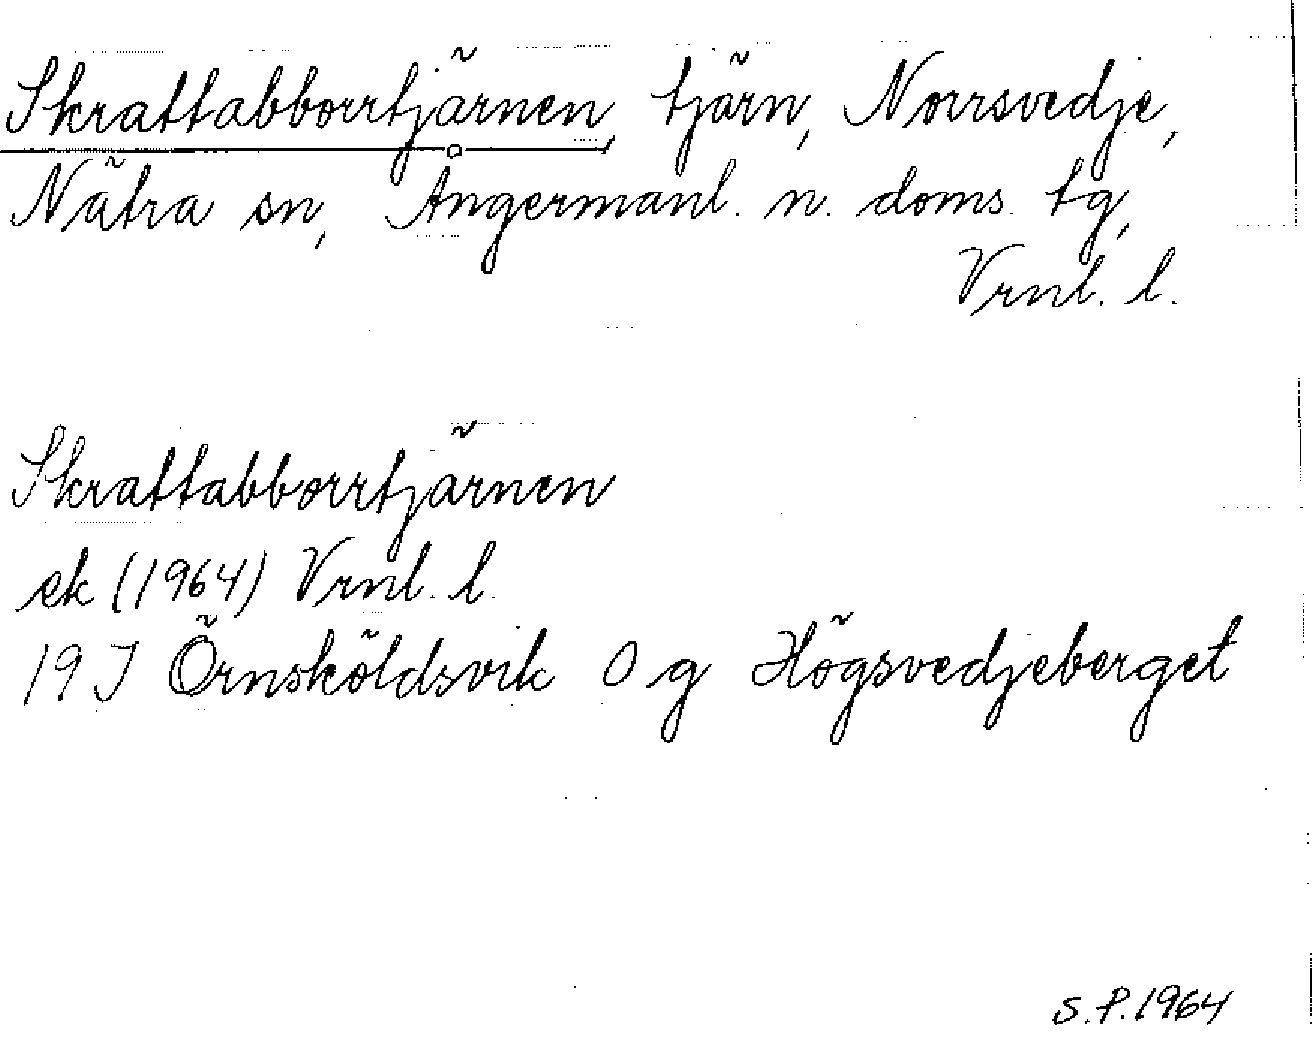 Skrattabborrtjärnen, tjärn, Norrsvedje,
Nätra sn, Ångermanl. n. doms. tg,
Vrnl. l.
Skrattabborrtjärnen
ek (1964) Vrnl. l.
19 I Örnsköldsvik 0 g Högsvedjeberget
S.P. 1964